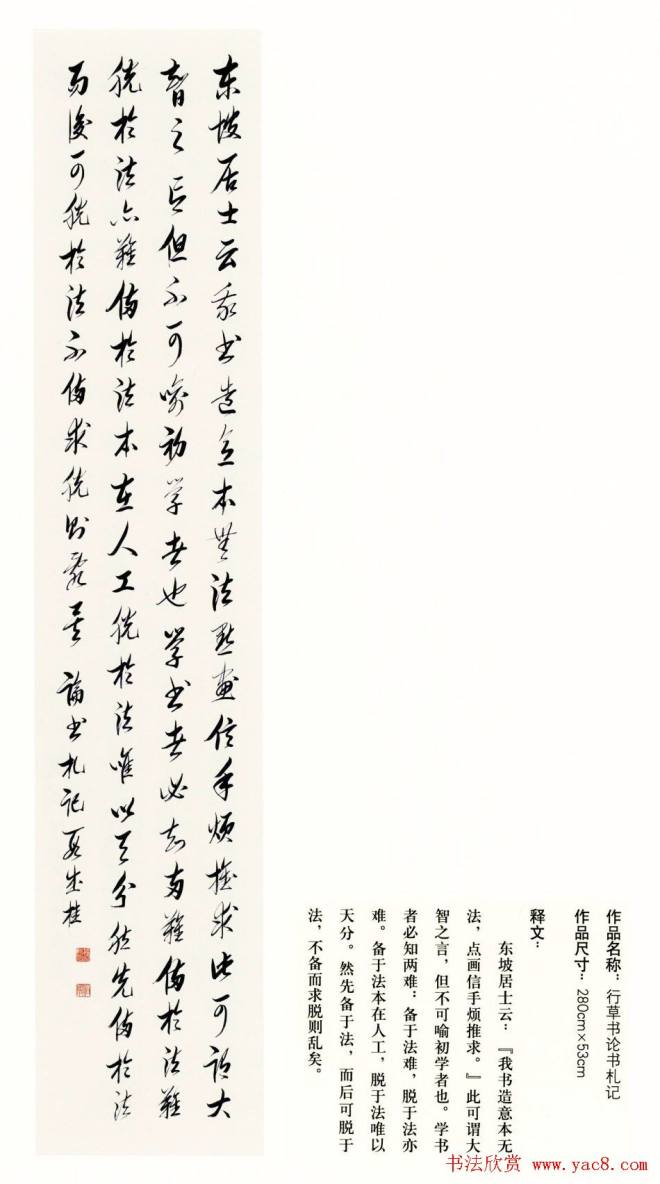 东坡居士云我书造意本無法點畫信手烦推求此可謂大
智之言但不可喻初学者也学书者必知两難備於法難
脱於法亦難備於法本在人工脱於法唯以天分然先備於法
而後可脱於法不備求脱則亂矣 論书札記 段成桂
作品名称：行草书论书札记
作品尺寸：280cm×53cm
释文：
东坡居士云：『我书造意本无
法，点画信手烦推求。』此可谓大
智之言，但不可喻初学者也。学书
者必知两难：备于法难，脱于法亦
难。备于法本在人工，脱于法唯以
天分。然先备于法，而后可脱于
法，不备而求脱则乱矣。
书法欣赏 www.yac8.com